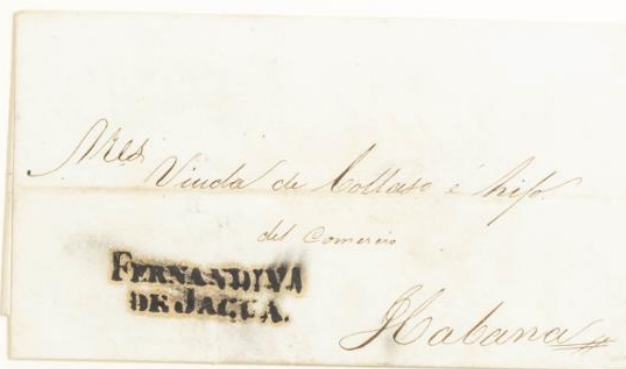 Viuda de Collaso é hijo
del Comercio
FERNANDINA
DE JAGUA.
Habana